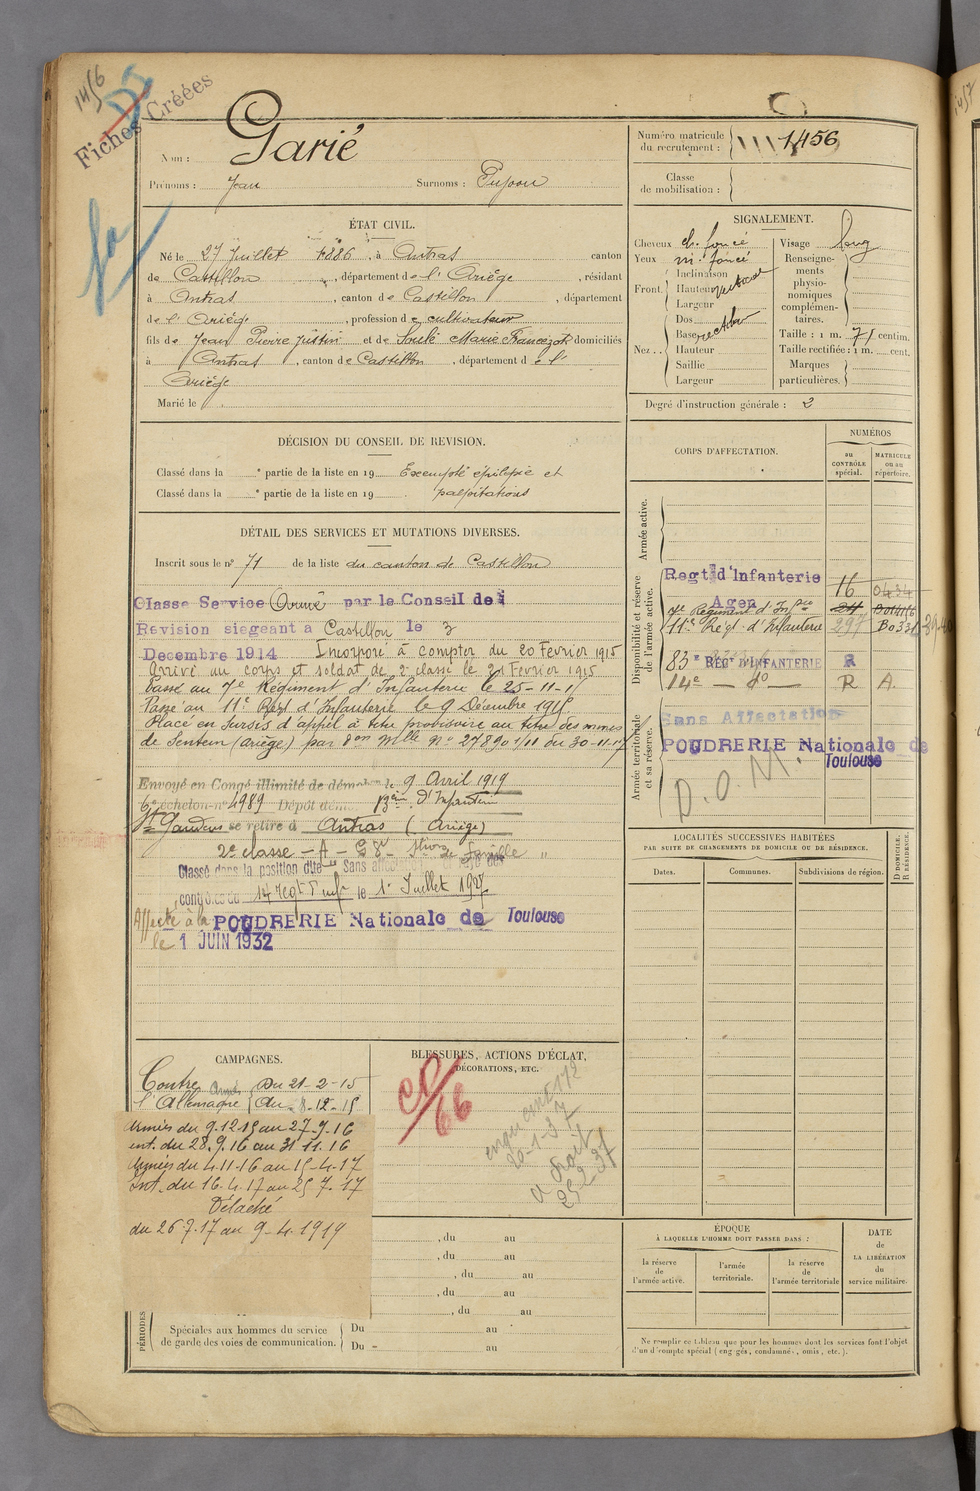 14/6
Fiches Créées
Nom : Garié
Prénoms : Jean Surnoms : Pujoou
Numéro matricule
du recrutement : 1456
Classe
de mobilisation :
ÉTAT CIVIL.
Né le 27 Juillet 1886, à Antras canton
de Castillon, département de l'Ariège, résidant
à Antras, canton de Castillon, département
de l'Ariège, profession de cultivateur
fils de Jean Pierre Justin et de Soulé Marie domiciliés
à Antras, canton de Castillon, département de l'
Ariège
Marié le
SIGNALEMENT.
Cheveux ch. foncé
Yeux m. foncé
Front. Inclinaison
Hauteur vertical
Largeur
Nez .. Dos
Base rectiligne
Hauteur
Saillie
Largeur
Visage long
Renseigne-
ments
physio-
nomiques
complémen-
taires.
Taille : 1 m. 71 centim.
Taille rectifiée : 1 m. cent.
Marques
particulières.
Degré d'instruction générale : 2
DÉCISION DU CONSEIL DE REVISION.
Classé dans la e partie de la liste en 19 Exempté épilepsie et
Classé dans la e partie de la liste en 19 palpitations
DÉTAIL DES SERVICES ET MUTATIONS DIVERSES.
Inscrit sous le no 71 de la liste du canton de Castillon
Classe Service Armé par le Conseil de
Revision siegeant a Castillon le 3
Decembre 1914 Incorporé à compter du 20 Fevrier 1915
Arrivé au corps et soldat de 2e classe le 21 Fevrier 1915
Passé au 7e Régiment d'Infanterie le 25-11-15
Passé au 11e Régt d'Infanterie le 9 Décembre 1915.
Placé en sursis d'appel à titre provisoire au titre des mines
de Sentein (Ariège) par don Mlle No 27890 1/11 du 30-11-17
Envoyé en Congé illimité de démob. le 9 Avril 1919
6e échelon-no 4989 Dépôt dém. 83e d'Infanterie
St Gaudens se retire à Antras (Ariège)
2e classe
Classé dans la position dite Sans affectation
14 Regt d'Infie le 1er Juillet 1927
Affecté à la POUDRERIE Nationale de Toulouse
le 1 JUIN 1932
CORPS D'AFFECTATION.
NUMÉROS
au
CONTRÔLE
spécial.
MATRICULE
ou au
répertoire.
Armée active.
Disponibilité et réserve
de l'armée active.
Regt d'Infanterie 16 0434
Agen
7e Régiment d'Infie
11e Régt d'Infanterie 297
83e REGt D'INFANTERIE R
14e — do — R A.
Armée territoriale
et sa réserve.
Sans Affectation
POUDRERIE Nationale de
Toulouse
D.O.M.
LOCALITÉS SUCCESSIVES HABITÉES
PAR SUITE DE CHANGEMENTS DE DOMICILE OU DE RÉSIDENCE.
Dates. Communes. Subdivisions de région.
D DOMICILE.
R RÉSIDENCE.
CAMPAGNES.
Contre Armées Du 21-2-15
l'Allemagne Au 8-12-15
Armées du 9.12.15 au 27.9.16
int. du 28.9.16 au 31 11.16
Armées du 4.11.16 au 15-4.17
Int. du 16.4.17 au 25 7.17
Détaché
du 26.7.17 au 9-4.1919
BLESSURES, ACTIONS D'ÉCLAT,
DÉCORATIONS, ETC.
20-1-37
, du au
, du au
, du au
, du au
, du au
PÉRIODES
Spéciales aux hommes du service
de garde des voies de communication.
Du au
Du au
ÉPOQUE
À LAQUELLE L'HOMME DOIT PASSER DANS :
la réserve
de
l'armée active.
l'armée
territoriale.
la réserve
de
l'armée territoriale
DATE
de
LA LIBÉRATION
du
service militaire.
Ne remplir ce tableau que pour les hommes dont les services font l'objet
d'un d'compte spécial (engagés, condamnés, omis, etc.).